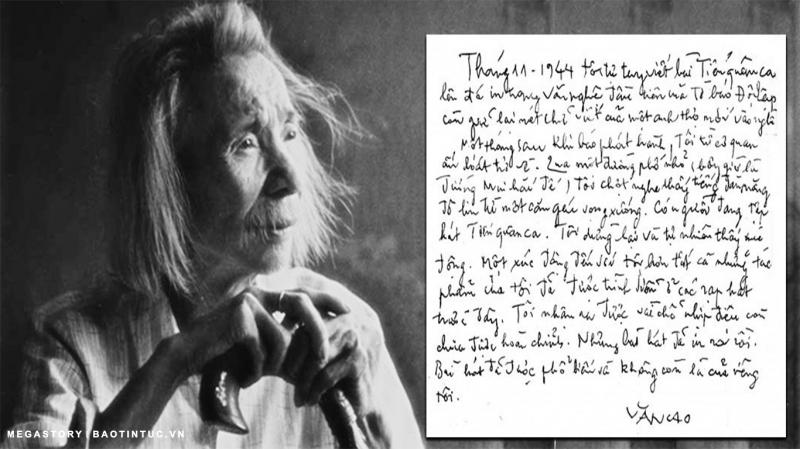 Tháng 11-1944 tôi tự tay viết bài Tiến quân ca
lên đá in trong văn nghệ đầu tiên mà Tờ báo Độc lập
còn giữ lại nét chữ viết của một anh thợ mới vào nghề
Một tháng sau khi báo phát hành, Tôi từ cơ quan
ấn loát trở về. Qua một đường phố nhỏ (bây giờ là
đường Mai hắc Đế) Tôi chợt nghe thấy tiếng đàn măng
đô lin từ một căn gác vọng xuống. Có người đang tập
hát Tiến quân ca. Tôi dừng lại và tự nhiên thấy xúc
động. Một xúc động đến với tôi hơn tất cả những tác
phẩm của tôi đã được trình diễn ở các rạp hát
trước đây. Tôi nhận ra được vài chỗ nhịp điệu còn
chưa được hoàn chỉnh. Nhưng bài hát đã in ra rồi.
Bài hát đã được phổ biến và không còn là của riêng
tôi.
VĂN CAO
MEGASTORY | BAOTINTUC.VN